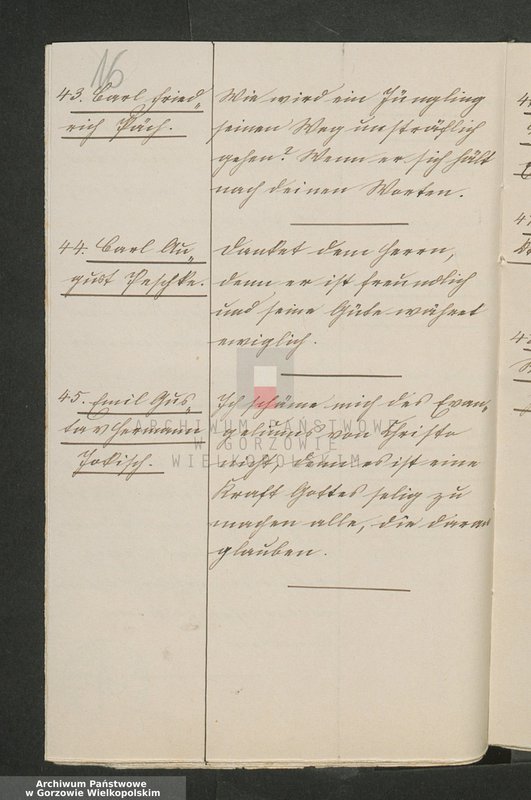 16
43. Carl Fried„
rich Päch.
Wie wird ein Jüngling
seinen Weg unsträflich
gehen? Wenn er sich hält
nach deinen Worten.
44. Carl Au„
gust Peschke.
Danket dem Herrn,
denn er ist freundlich
und seine Güte währet
ewiglich.
45. Emil Gus„
tav Hermann
Jokisch.
Ich schäme mich des Evan„
geliums von Christo
nicht, denn es ist eine
Kraft Gottes selig zu
machen alle, die daran
glauben.
ARCHIWUM PAŃSTWOWE
W GORZOWIE
WIELKOPOLSKIM
Archiwum Państwowe
w Gorzowie Wielkopolskim